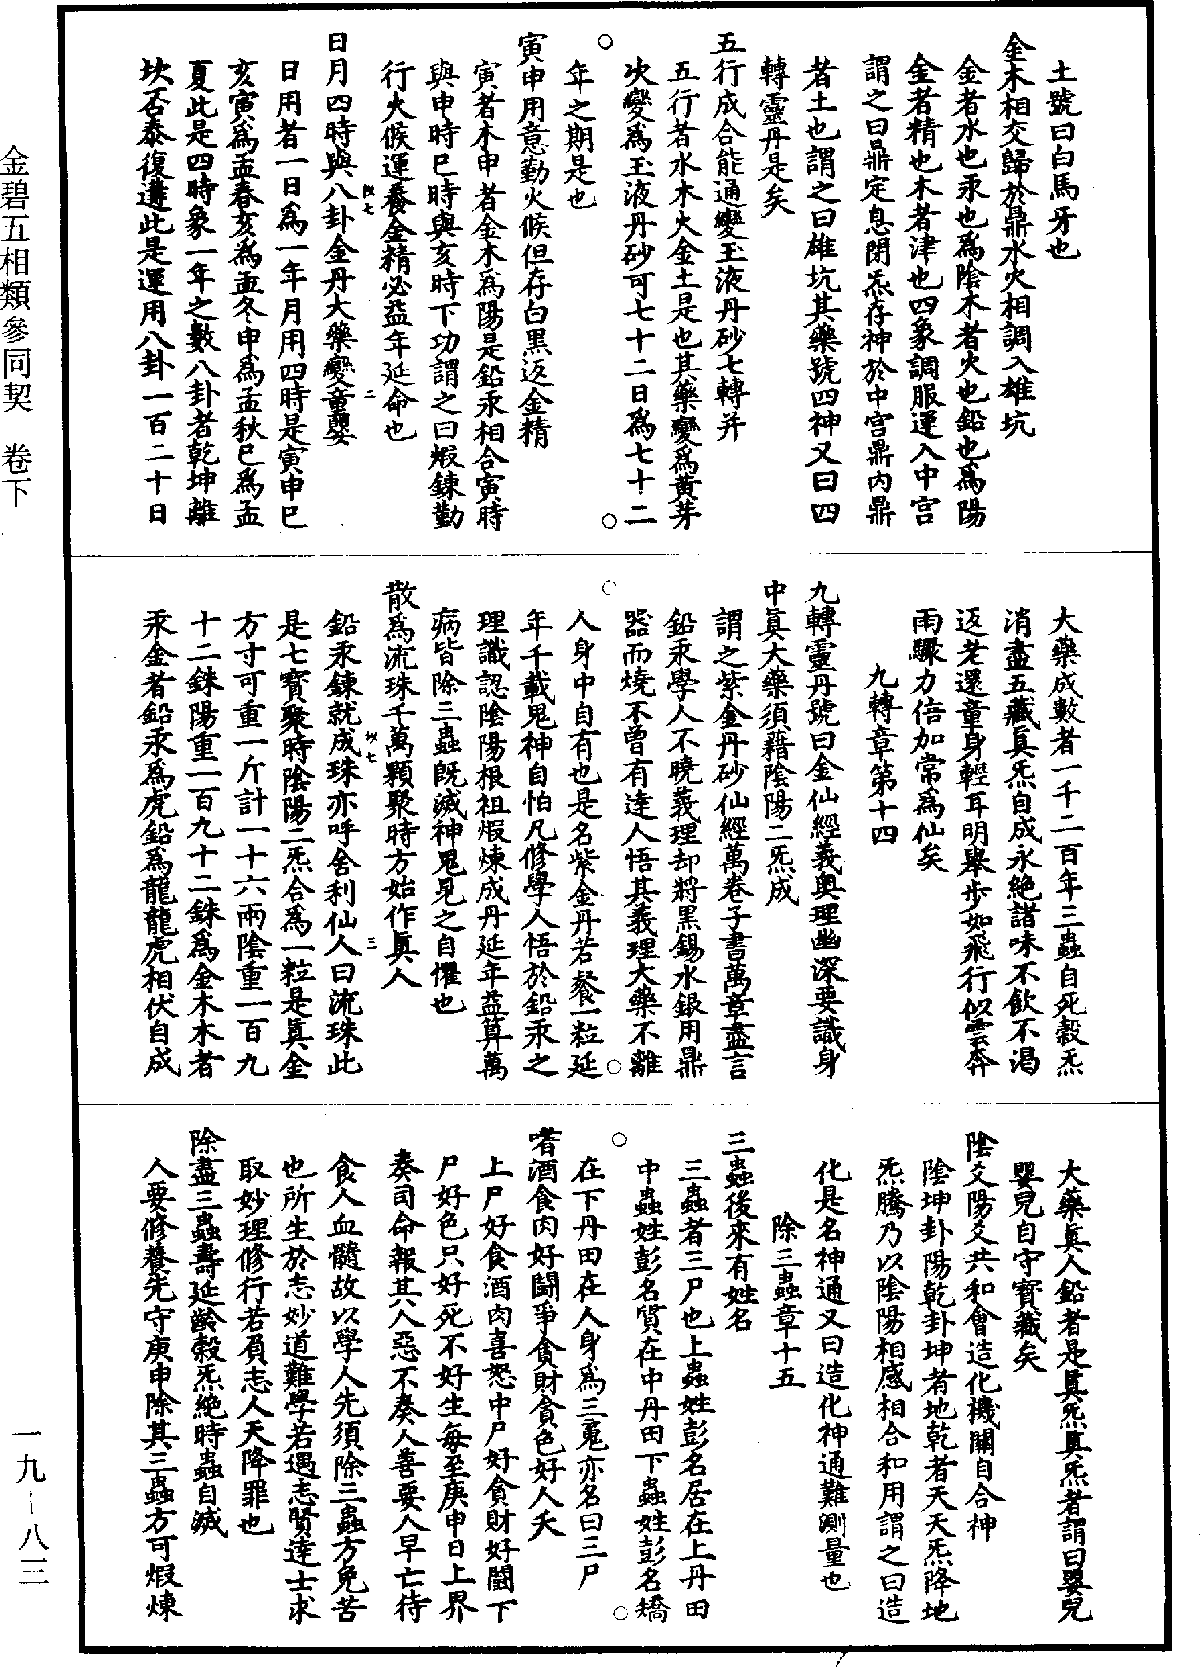 土號曰白馬牙也
金木相交歸於鼎水火相調入雄坑
金者水也汞也為陰木者火也鉛也為陽
金者精也木者津也四象調服運入中宮
謂之曰鼎定息閉炁存神於中宮鼎內鼎
者土也謂之曰雄坑其藥號四神又曰四
轉靈丹是矣
五行成合能通變玉液丹砂七轉并
五行者水木火金土是也其藥變為黃芽
次變為玉液丹砂可七十二日為七十二
年之期是也
寅申用意勤火候但存白黑返金精
寅者木申者金木為陽是鉛汞相合寅時
與申時巳時與亥時下功謂之曰煅鍊勤
行火候運養金精必益年延命也
日月四時與八卦金丹大藥變童嬰
日用者一日為一年月用四時是寅申巳
亥寅為孟春亥為孟冬申為孟秋巳為孟
夏此是四時象一年之數八卦者乾坤離
坎否泰復遘此是運用八卦一百二十日
大藥成數者一千二百年三蟲自死穀炁
消盡五藏真炁自成永絕諸味不飲不渴
返老還童身輕耳明舉步如飛行似雲奔
雨驟力倍加常為仙矣
九轉章第十四
九轉靈丹號曰金仙經義奧理幽深要識身
中真大藥須藉陰陽二炁成
謂之紫金丹砂仙經萬卷子書萬章盡言
鉛汞學人不曉義理却將黑錫水銀用鼎
器而燒不曾有達人悟其義理大藥不離
人身中自有也是名紫金丹若餐一粒延
年千載鬼神自怕凡修學人悟於鉛汞之
理識認陰陽根祖煅煉成丹延年益算萬
病皆除三蟲既滅神鬼見之自懼也
散為流珠千萬顆聚時方始作真人
鉛汞鍊就成珠亦呼舍利仙人曰流珠此
是七寶聚時陰陽二炁合為一粒是真金
方寸可重一斤計一十六兩陰重一百九
十二銖陽重一百九十二銖為金木木者
汞金者鉛汞為虎鉛為龍龍虎相伏自成
大藥真人鉛者是真炁真炁者謂曰嬰兒
嬰兒自守寶藏矣
陰爻陽爻共和會造化機關自合神
陰坤卦陽乾卦坤者地乾者天天炁降地
炁騰乃以陰陽相感相合和用謂之曰造
化是名神通又曰造化神通難測量也
除三蟲章十五
三蟲後來有姓名
三蟲者三尸也上蟲姓彭名居在上丹田
中蟲姓彭名質在中丹田下蟲姓彭名矯
在下丹田在人身為三䰟亦名曰三尸
嗜酒食肉好鬪爭貪財貪色好人夭
上尸好食酒肉喜怒中尸好貪財好鬪下
尸好色只好死不好生每至庚申日上界
奏司命報其人惡不奏人善要人早亡待
食人血髓故以學人先須除三蟲方免苦
也所生於志妙道難學若遇志賢達士求
取妙理修行若負志人天降罪也
除盡三蟲壽延齡穀炁絕時蟲自滅
人要修養先守庚申除其三蟲方可煅煉
金碧五相類參同契　卷下
一九－八三